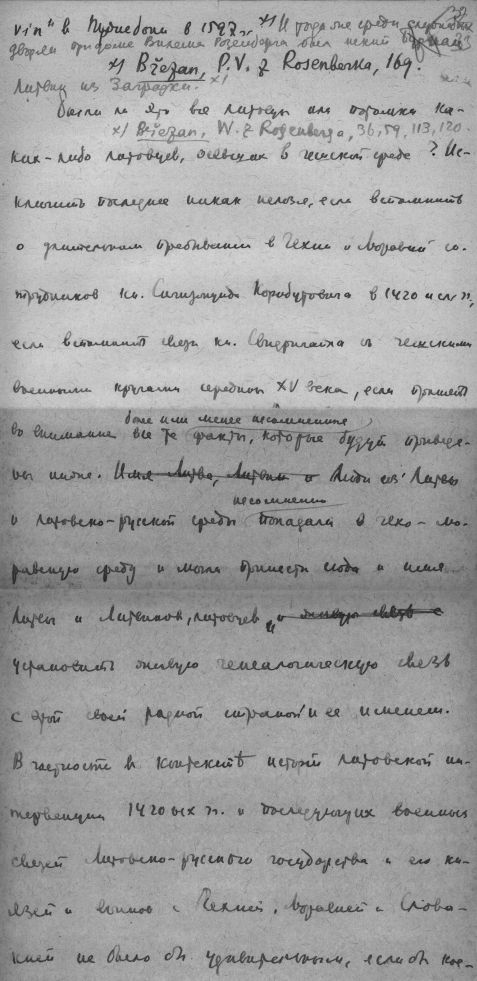 vín" в 1597 г. x) И тогда же среди служилых
дворян при доме Вилема Розенберга был некий
x) Březan, P.V. z Rosenberka, 169.
Литвин из Заградки. x)
Были ли это все литовцы или потомки ка-
x) Březan, W. z Rosenberga, 36, 59, 113, 120.
ких-либо литовцев, осевших в чешской среде? Ис-
ключить последнее никак нельзя, если вспомнить
о длительном пребывании в Чехии и Моравии со-
трудников кн. Сигизмунда Корибутовича в 1420 и сл. гг.,
если вспомнить связи кн. Свидригайла с чешскими
военными кругами середины XV века, если принять
более или менее несомненные
во внимание все те факты, которые будут приведе-
ны ниже. Имя Литва, Литвин и Люди из Литвы
несомненно
и литовско-русской среды попадали в чехо-мо-
равскую среду и могли принести сюда и имя
Литвы и Литвинов, литовцев, и живую связь с
установить живую генеалогическую связь
с этой своей родной страной и ее именем.
В частности в контексте истории литовской ин-
тервенции 1420ых гг. и последующих военных
связей Литовско-русского государства и его кн-
язей и воинов с Чехией, Моравией и Слова-
кией не было бы удивительным, если бы кое-